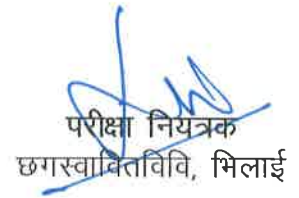 परीक्षा नियंत्रक
छगस्वावितविवि, भिलाई